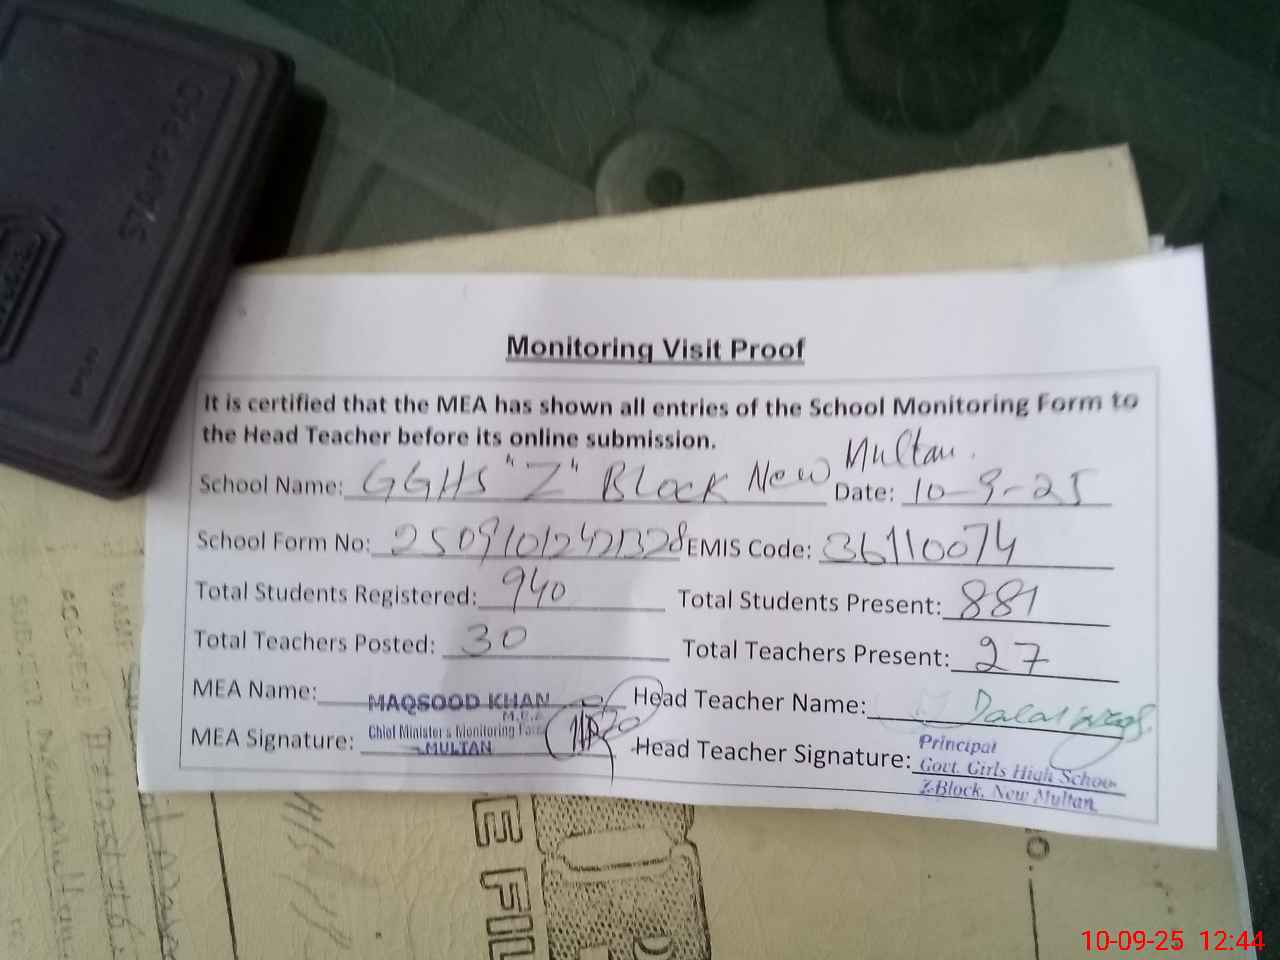 STAMPAD
Monitoring Visit Proof
It is certified that the MEA has shown all entries of the School Monitoring Form to
the Head Teacher before its online submission.
School Name: GGHS "Z" Block New Multan. Date: 10-9-25
School Form No: EMIS Code: 36110074
Total Students Registered: 940 Total Students Present: 881
Total Teachers Posted: 30 Total Teachers Present: 27
MEA Name: MAQSOOD KHAN Head Teacher Name:
M.E.A
MEA Signature: Chief Minister's Monitoring Force Head Teacher Signature: Principal
MULTAN Govt. Girls High School
Z-Block, New Multan
NAME
ADDRESS
SUBJECT New Multan
E FIL
NO.
10-09-25 12:44